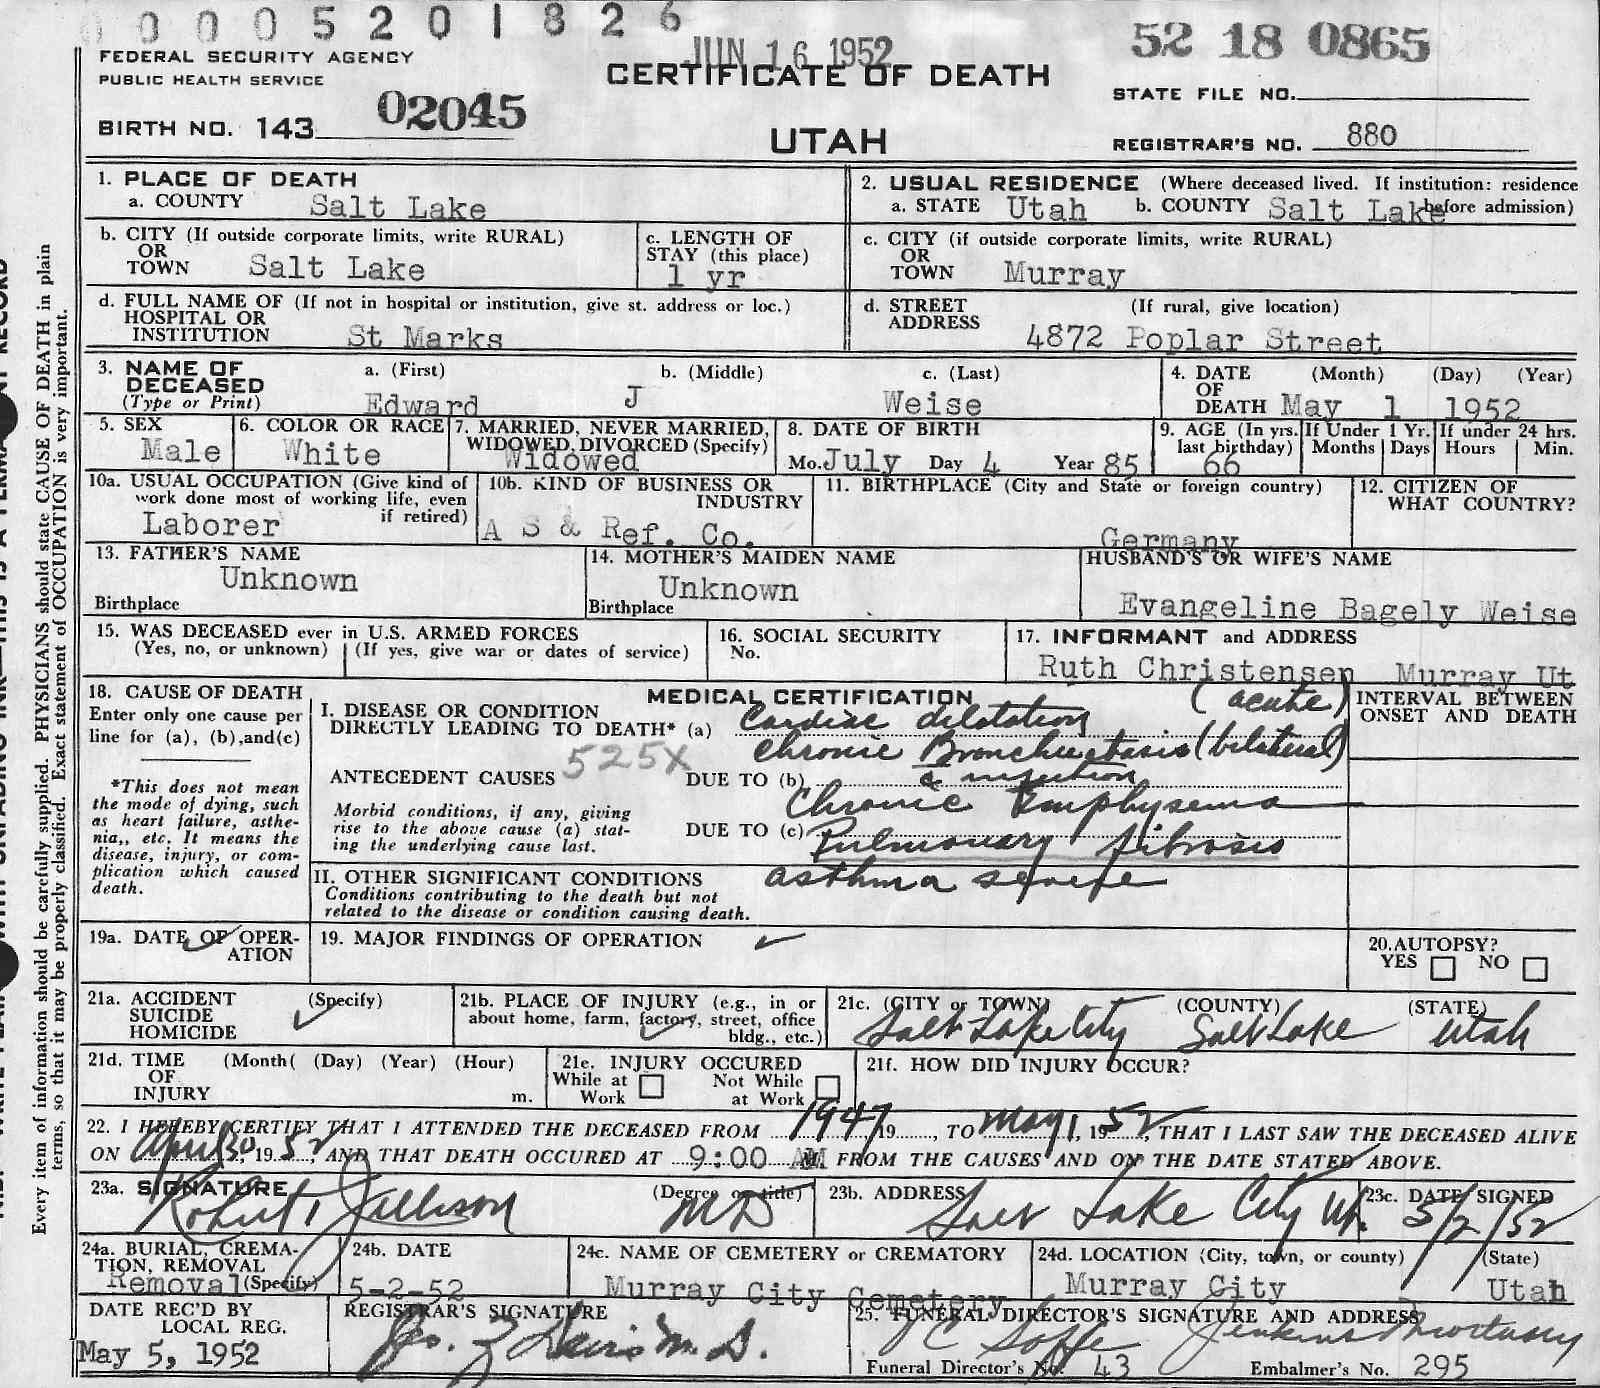 00005201826
JUN 16 1952
52 18 0865
FEDERAL SECURITY AGENCY
PUBLIC HEALTH SERVICE
CERTIFICATE OF DEATH
STATE FILE NO.
BIRTH NO. 143 02045
UTAH
REGISTRAR'S NO. 880
1. PLACE OF DEATH
a. COUNTY Salt Lake
2. USUAL RESIDENCE (Where deceased lived. If institution: residence before admission)
a. STATE Utah b. COUNTY Salt Lake
b. CITY (If outside corporate limits, write RURAL)
OR
TOWN Salt Lake
c. LENGTH OF
STAY (this place)
1 yr
c. CITY (if outside corporate limits, write RURAL)
OR
TOWN Murray
d. FULL NAME OF (If not in hospital or institution, give st. address or loc.)
HOSPITAL OR
INSTITUTION St Marks
d. STREET (If rural, give location)
ADDRESS 4872 Poplar Street
3. NAME OF
DECEASED
(Type or Print)
a. (First) b. (Middle) c. (Last)
Edward J Weise
4. DATE (Month) (Day) (Year)
OF
DEATH May 1 1952
5. SEX
Male
6. COLOR OR RACE
White
7. MARRIED, NEVER MARRIED,
WIDOWED, DIVORCED (Specify)
Widowed
8. DATE OF BIRTH
Mo. July Day 4 Year 85
9. AGE (In yrs.
last birthday)
66
If Under 1 Yr.
Months Days
If under 24 hrs.
Hours Min.
10a. USUAL OCCUPATION (Give kind of
work done most of working life, even
if retired)
Laborer
10b. KIND OF BUSINESS OR
INDUSTRY
A S & Ref. Co.
11. BIRTHPLACE (City and State or foreign country)
Germany
12. CITIZEN OF
WHAT COUNTRY?
13. FATHER'S NAME
Unknown
Birthplace
14. MOTHER'S MAIDEN NAME
Unknown
Birthplace
HUSBAND'S OR WIFE'S NAME
Evangeline Bagely Weise
15. WAS DECEASED ever in U.S. ARMED FORCES
(Yes, no, or unknown) (If yes, give war or dates of service)
16. SOCIAL SECURITY
No.
17. INFORMANT and ADDRESS
Ruth Christensen Murray Ut
18. CAUSE OF DEATH
Enter only one cause per
line for (a), (b),and(c)
*This does not mean
the mode of dying, such
as heart failure, asthe-
nia,, etc. It means the
disease, injury, or com-
plication which caused
death.
MEDICAL CERTIFICATION
I. DISEASE OR CONDITION
DIRECTLY LEADING TO DEATH* (a) Cardiac dilatation (acute)
525X
ANTECEDENT CAUSES
Morbid conditions, if any, giving
rise to the above cause (a) stat-
ing the underlying cause last.
Chronic Bronchiectasis (bilateral)
DUE TO (b) c infection
Chronic Emphysema
DUE TO (c) Pulmonary fibrosis
II. OTHER SIGNIFICANT CONDITIONS asthma severe
Conditions contributing to the death but not
related to the disease or condition causing death.
INTERVAL BETWEEN
ONSET AND DEATH
19a. DATE OF OPER-
ATION
19. MAJOR FINDINGS OF OPERATION
20. AUTOPSY?
YES NO
21a. ACCIDENT (Specify)
SUICIDE
HOMICIDE
21b. PLACE OF INJURY (e.g., in or
about home, farm, factory, street, office
bldg., etc.)
21c. (CITY or TOWN) (COUNTY) (STATE)
Salt Lake City Salt Lake Utah
21d. TIME (Month( (Day) (Year) (Hour)
OF
INJURY m.
21e. INJURY OCCURED
While at Work Not While at Work
21f. HOW DID INJURY OCCUR?
22. I HEREBY CERTIFY THAT I ATTENDED THE DECEASED FROM 1947, 19, TO May 1, 1952, THAT I LAST SAW THE DECEASED ALIVE
ON April 30, 1952, AND THAT DEATH OCCURED AT 9:00 AM FROM THE CAUSES AND ON THE DATE STATED ABOVE.
23a. SIGNATURE (Degree or title)
Robert Jellison MD
23b. ADDRESS
Salt Lake City Ut.
23c. DATE SIGNED
5/2/52
24a. BURIAL, CREMA-
TION, REMOVAL
Removal (Specify)
24b. DATE
5-2-52
24c. NAME OF CEMETERY or CREMATORY
Murray City Cemetery
24d. LOCATION (City, town, or county) (State)
Murray City Utah
DATE REC'D BY
LOCAL REG.
May 5, 1952
REGISTRAR'S SIGNATURE
Davis M.D.
25. FUNERAL DIRECTOR'S SIGNATURE AND ADDRESS
Jenkins Mortuary
Funeral Director's No. 43 Embalmer's No. 295
Every item of information should be carefully supplied. PHYSICIANS should state CAUSE OF DEATH in plain
terms, so that it may be properly classified. Exact statement of OCCUPATION is very important.